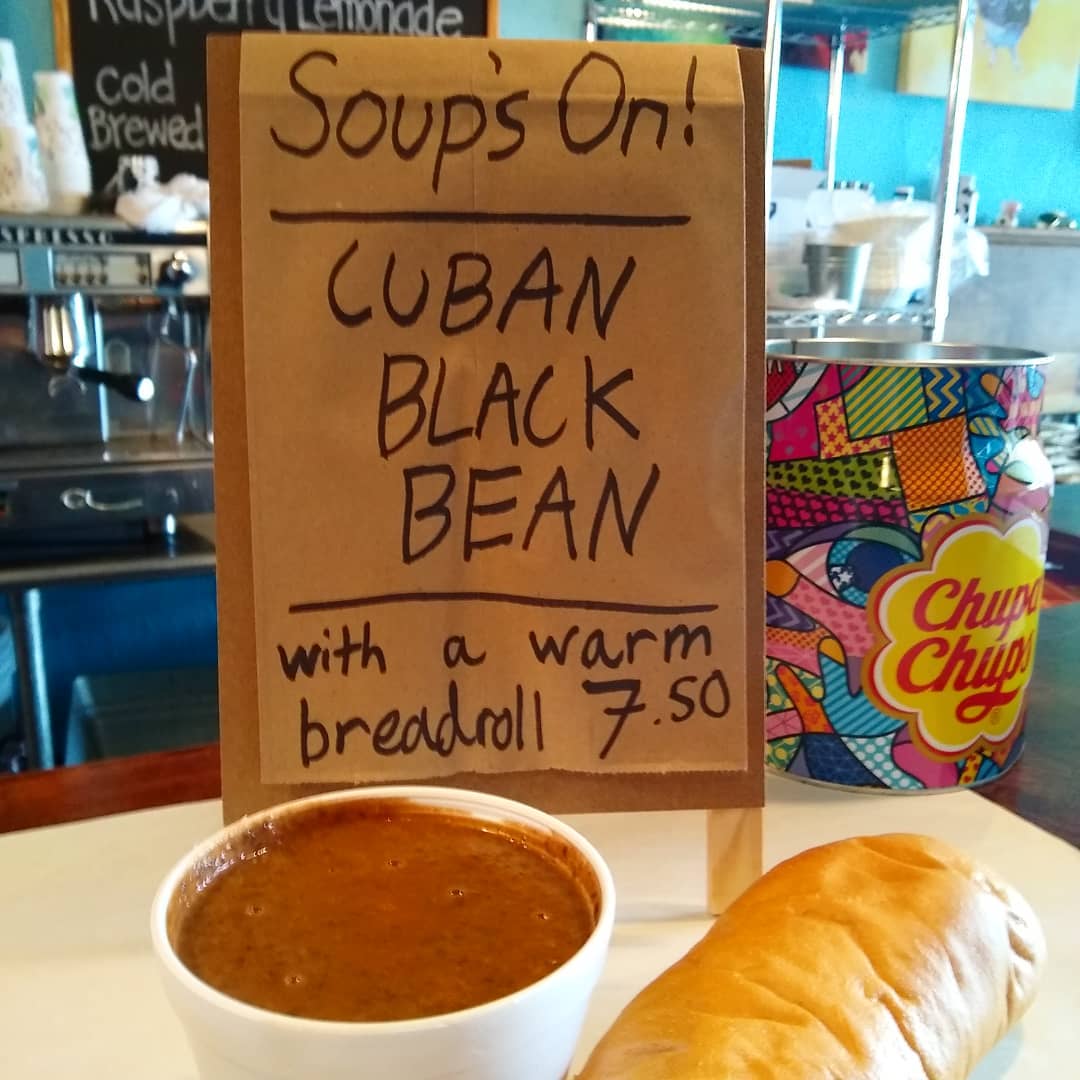 Raspberry Lemonade
Cold
Brewed
Soup's On!
CUBAN
BLACK
BEAN
with a warm
breadroll 7.50
Chupa
Chups